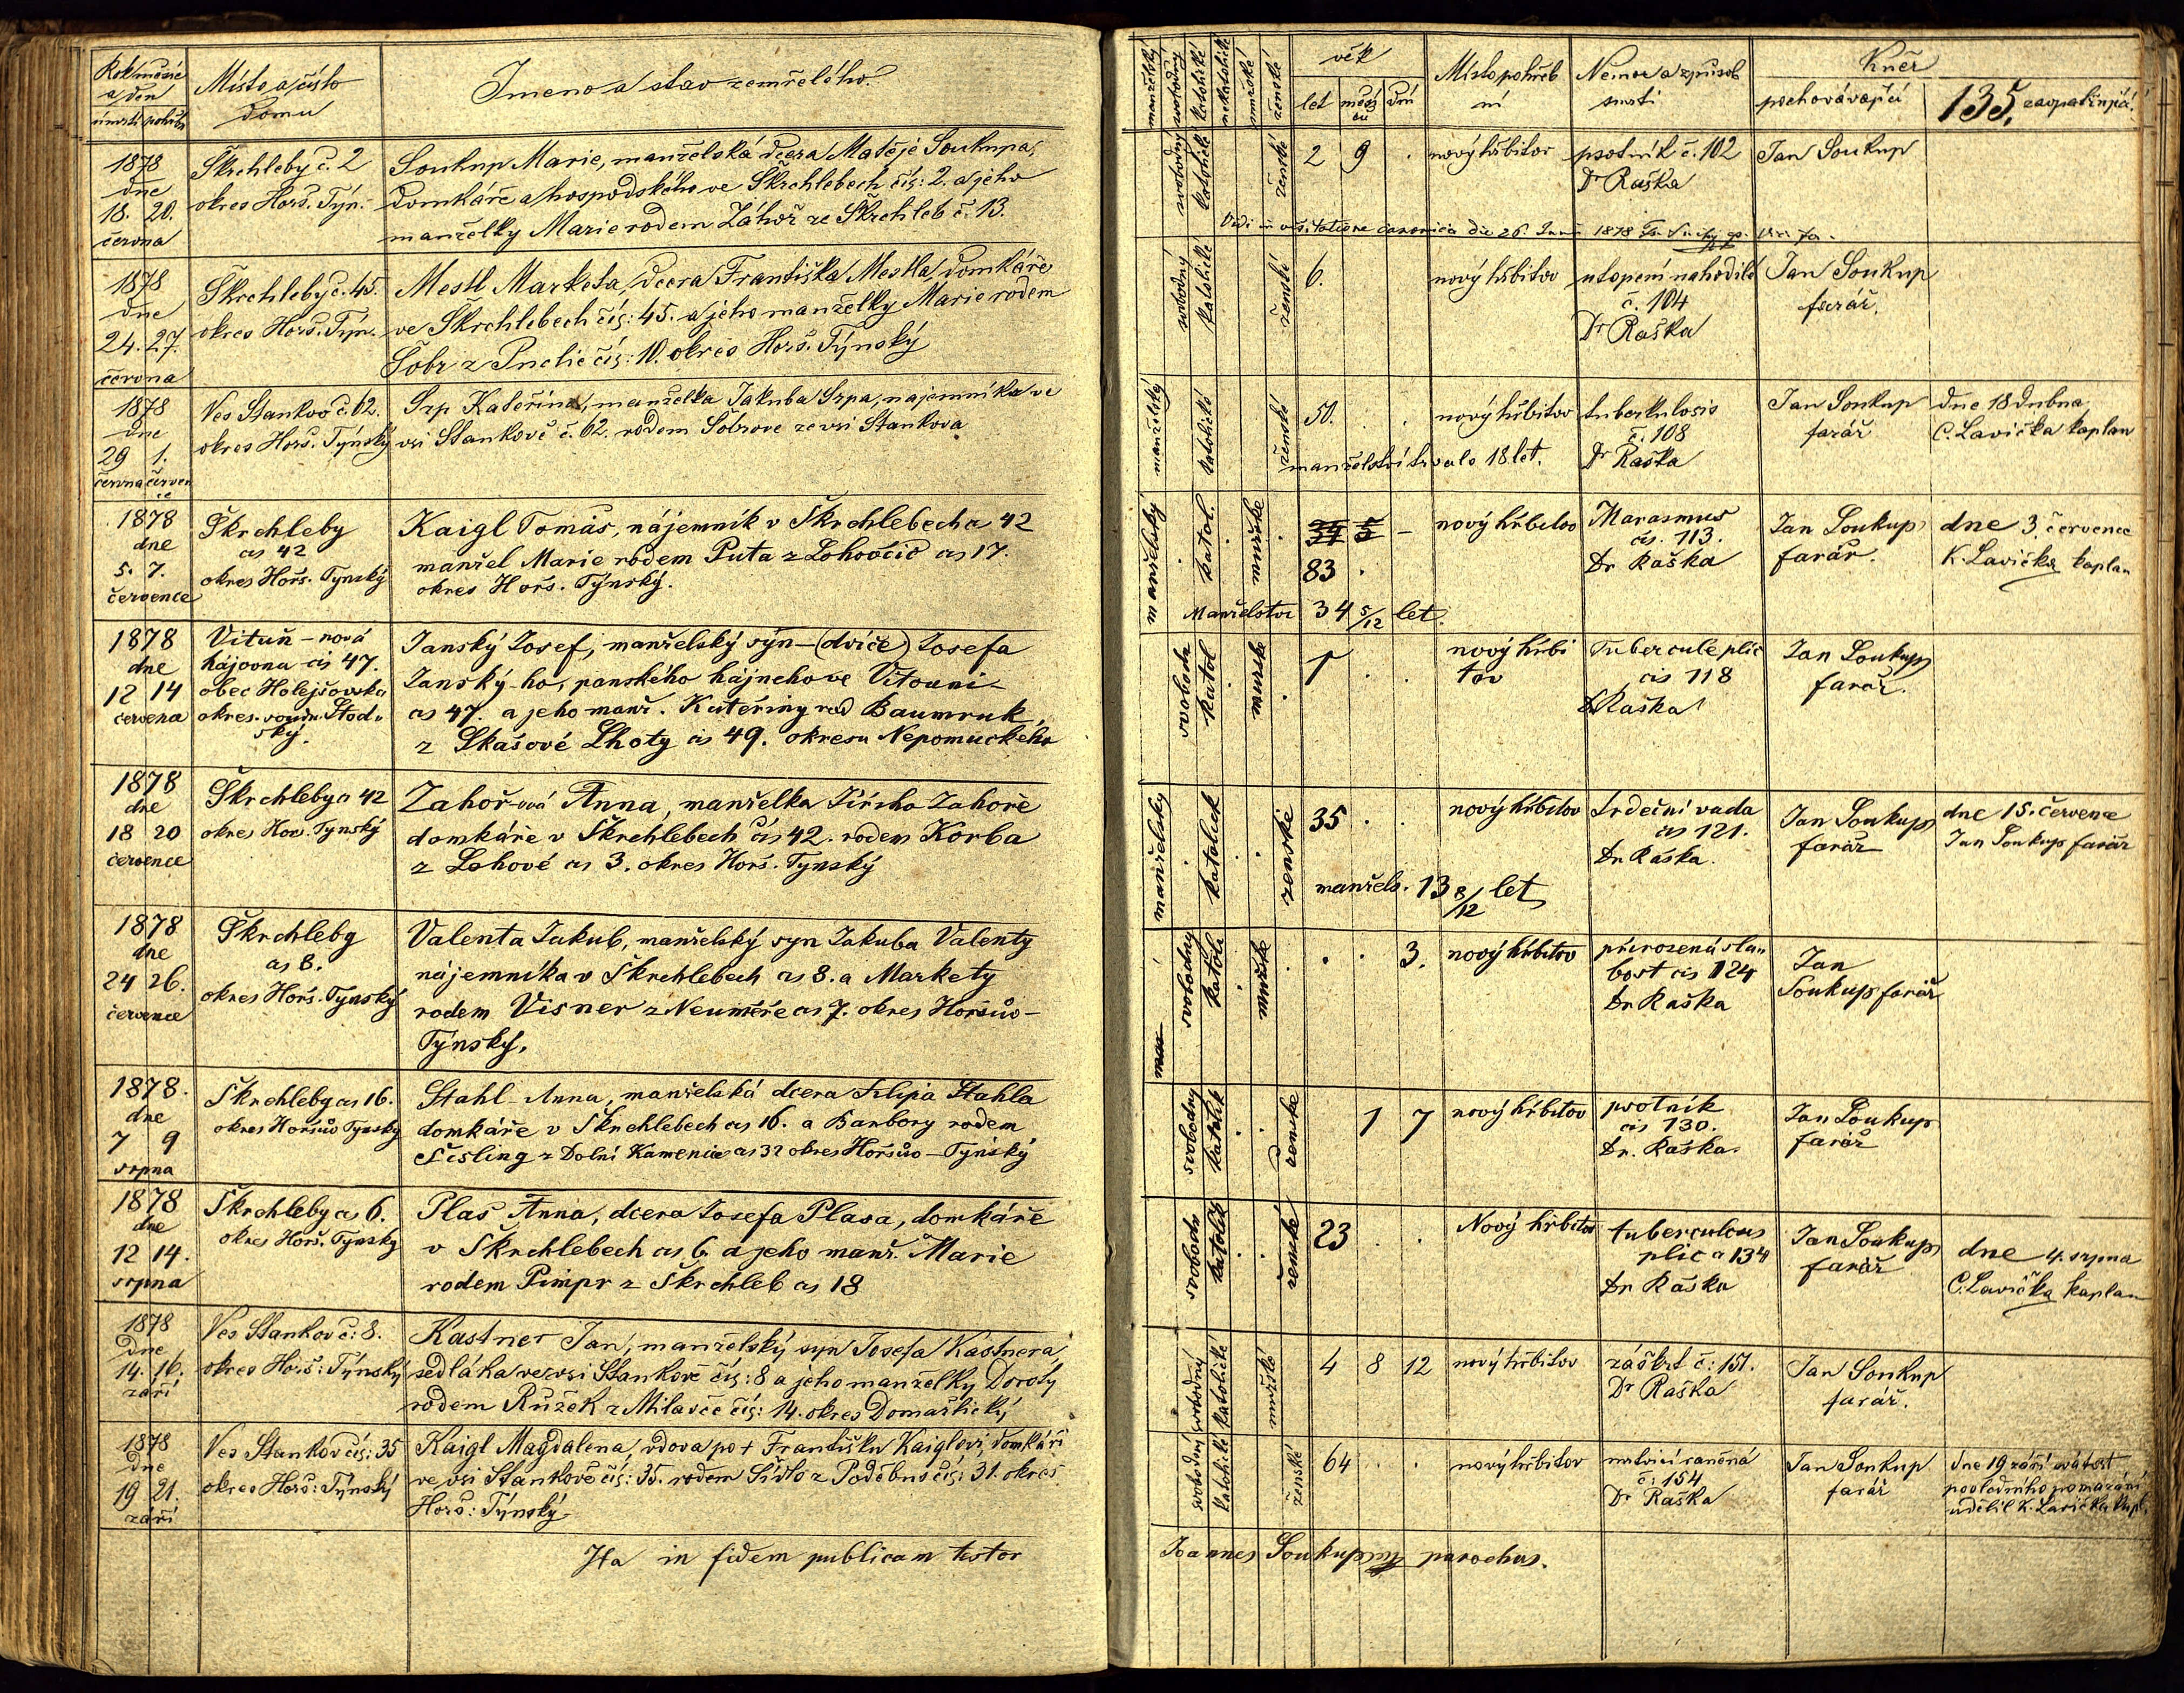 Rok měsíc
a den
úmrtí pohřbu
Místo a číslo
domu
Jmeno a stav zemřelého.
1878
dne
18. 20.
června
Škrchleby č. 2
okres Horš. Týn.
Soukup Marie, manželská dcera Matěje Soukupa,
domkáře a hospodského ve Škrchlebech čís: 2. a jeho
manželky Marie rodem Záhoř ze Škrchleb č. 13.
1878
dne
24. 27.
června
Škrchleby č. 45.
okres Horš. Týn.
Mestl Marketa, dcera Františka Mestla, domkáře
ve Škrchlebech čís: 45. a jeho manželky Marie rodem
Šobr z Puclic čís: 10. okres Horš. Týnský
1878
dne
29 1.
června červen
ce
Ves Stankov č. 62.
okres Horš. Týnský
Srp Kateřina, manželka Jakuba Srpa, najemníka ve
vsi Stankově č. 62. rodem Šobrove ze vsi Stankova
1878
dne
5. 7.
července
Škrchleby
čs 42
okres Horš. Tynský
Kaigl Tomáš, nájemník v Škrchlebech č 42
manžel Marie rodem Puta z Lohovčic čs 17.
okres Horš. Týnský.
1878
dne
12 14
červena
Vituň – nová
hájovna čís 47.
obec Holejšovska
okres. soudn. Stod„
ský.
Janský Josef, manželský syn – (dvíče) Josefa
Janský-ho, panského hájneho ve Vitouni –
čs 47. a jeho manž. Kateřiny rod Baumruk,
z Skašové Lhoty čs 49. okresu Nepomuckého
1878
dne
18 20
července
Škrchleby čs 42
okres Hor. Tynský
Zahoř-ová Anna, manželka Jiřiho Zahoře
domkáře v Škrchlebech čís 42. rodem Korba
z Lohové čs 3. okres Horš. Tynský
1878
dne
24 26.
července
Škrchleby
čs 8.
okres Horš. Tynský
Valenta Jakub, manželský syn Jakuba Valenty
nájemníka v Škrchlebech čs 8. a Markety
rodem Visner z Neuměře čs 7. okres Horšův –
Týnský.
1878.
dne
7 9
srpna
Škrchleby čs 16.
okres Horšův Tynský
Stahl Anna, manželská dcera Filipa Stahla
domkáře v Škrchlebech čs 16. a Barbory rodem
Šisling z Dolní Kamenice čs 32 okres Horšův – Týnský
1878
dne
12 14.
srpna
Škrchleby čs 6.
okres Horš. Tynský
Plas Anna, dcera Josefa Plasa, domkáře
v Škrchlebech čs 6. a jeho manž. Marie
rodem Pimpr z Škrchleb čs 18
1878
dne
14. 16.
září
Ves Stankov č: 8.
okres Horš: Týnský
Kastner Jan, manželský syn Josefa Kastnera,
sedláka ve vsi Stankově čís: 8 a jeho manželky Doroty
rodem Růžek z Milavče čís: 14. okres Domažlický
1878
dne
19 21.
září
Ves Stankov čís: 35
okres Horš: Týnský
Kaigl Magdalena, vdova po + Františku Kaiglovi, domkáři
ve vsi Stankově čís: 35. rodem Sídlo z Poděbus čís: 31. okres
Horš: Týnský
Ita in fidem publicam testor
manželský
svobodný
katolické
nekatolické
mužské
ženské
věk
let měsí
ců dní
Místo pohřeb
ní
Nemoc a způsob
smrti
Kněz
pochovávající
135. zaopatřující
svobodný
katolické
ženské
2 9 .
nový hřbitov
psotník č. 102
Dr Raška
Jan Soukup
Vidi in visitatione canonica die 26. Juni 1878
svobodný
katolické
ženské
6.
nový hřbitov
utopení nahodilé
č. 104
Dr Raška
Jan Soukup
farář.
manželský
katolické
ženské
50. . .
manželství trvalo 18 let.
nový hřbitov
tuberkulosis
č. 108
Dr Raška
Jan Soukup
farář
dne 18 dubna
C. Lavička kaplan
manželský
katol.
mužske
34 5 –
83 .
Manželstvi 34 5/12 let.
nový hřbitov
Marasmus
čís. 113.
Dr Raška
Jan Soukup
farář.
dne 3. července
K. Lavička kaplan
svoboda
katol
mužske
1 . .
nový hřbi
tov
Tubercule plic
čís 118
Dr Raška
Jan Soukup
farář.
manželsky
katolick
zenske
35 . .
manžels. 13 8/12 let
nový hřbitov
Srdeční vada
čís 121.
Dr. Raška.
Jan Soukup
farář
dne 15. července
Jan Soukup farář
man
svobodny
katoli
mužske
. . 3.
nový hřbitov
přirozená sla„
bost čís 124
Dr. Raška
Jan
Soukup farář
svobodny
katolik
zenske
1 7
nový hřbitov
psotník
čís 130.
Dr. Raška.
Jan Soukup
farář
svobodn
katolik
ženské
23 . .
Nový hřbitov
tuberculous
plic č 134
Dr Raška
Jan Soukup
farář
dne 4. srpna
C. Lavička kaplan
svobodný
katolické
mužské
4 8 12
nový hřbitov
záškrt č: 151.
Dr Raška
Jan Soukup
farář.
svobodný
katolické
ženské
64 . .
nový hřbitov
mrtvicí raněná
č: 154
Dr Raška
Jan Soukup
farář
dne 19 září svátost
posledního pomazání
udělil K. Lavička kapl.
Joannes Soukup mp parochus.